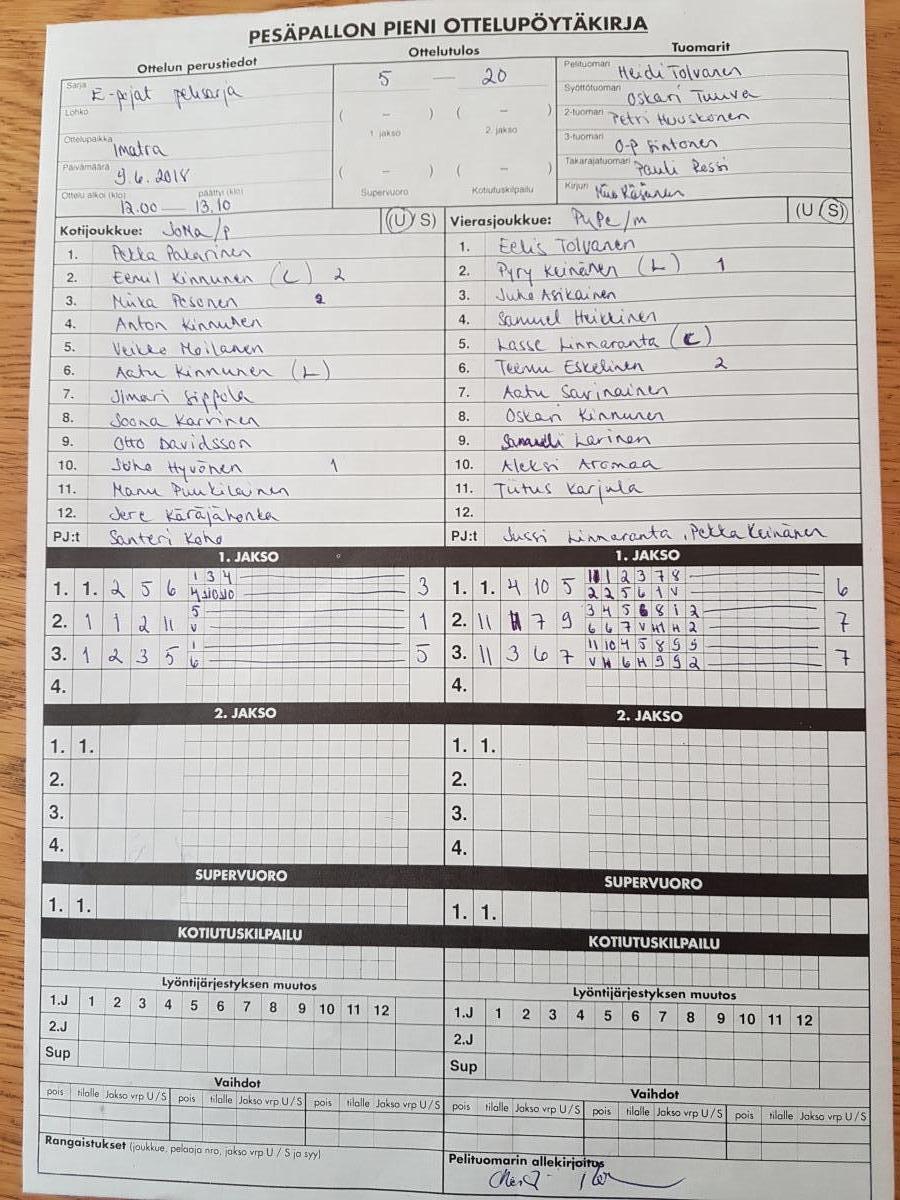 PESÄPALLON PIENI OTTELUPÖYTÄKIRJA
Ottelun perustiedot
Ottelutulos
Tuomarit
Sarja E-pojat pelisarja
Lohko
Ottelupaikka Imatra
Päivämäärä 9.6.2018
Ottelu alkoi (klo) päättyi (klo)
12.00 — 13.10
5 — 20
( – ) ( – )
1. jakso 2. jakso
( – ) ( – )
Supervuoro Kotiutuskilpailu
Pelituomari Heidi Tolvanen
Syöttötuomari Oskari Tuuva
2-tuomari Petri Huuskonen
3-tuomari O-P Sintonen
Takarajatuomari Pauli Ressi
Kirjuri
Kotijoukkue: JoMa/p (U/S)
1. Pekka Pakarinen
2. Eemil Kinnunen (C) 2
3. Miika Pesonen 2
4. Anton Kinnunen
5. Veikko Moilanen
6. Aatu Kinnunen (L)
7. Ilmari Sippola
8. Joona Karvinen
9. Otto Davidsson
10. Juho Hyvönen 1
11. Manu Puukilainen
12. Jere Käräjähonka
PJ:t Santeri Koho
Vierasjoukkue: PuPe/m (U/S)
1. Eelis Tolvanen
2. Pyry Keinänen (L) 1
3. Juho Asikainen
4. Samuel Heikkinen
5. Lasse Linnaranta (C)
6. Teemu Eskelinen 2
7. Aatu Savinainen
8. Oskari Kinnunen
9. Samuli Larinen
10. Aleksi Aromaa
11. Tiitus Karjula
12.
PJ:t Jussi Linnaranta, Pekka Keinänen
1. JAKSO
1. 1. 2 5 6
1 3 4
3
2. 1 1 2 11
5
V
1
3. 1 2 3 5
1
6
5
4.
1. JAKSO
1. 1. 4 10 5
1 2 3 7 8
2 2 5 6 1 V
6
2. 11 7 9
3 4 5 6 8 1 2
6 6 7 V H1 H 2
7
3. 11 3 6 7
11 10 4 5 8 9 9
V H 6 H 9 9 2
7
4.
2. JAKSO
1. 1.
2.
3.
4.
2. JAKSO
1. 1.
2.
3.
4.
SUPERVUORO
1. 1.
SUPERVUORO
1. 1.
KOTIUTUSKILPAILU
KOTIUTUSKILPAILU
Lyöntijärjestyksen muutos
1.J 1 2 3 4 5 6 7 8 9 10 11 12
2.J
Sup
Lyöntijärjestyksen muutos
1.J 1 2 3 4 5 6 7 8 9 10 11 12
2.J
Sup
Vaihdot
pois tilalle Jakso vrp U/S pois tilalle Jakso vrp U/S pois tilalle Jakso vrp U/S
Vaihdot
pois tilalle Jakso vrp U/S pois tilalle Jakso vrp U/S pois tilalle Jakso vrp U/S
Rangaistukset (joukkue, pelaaja nro, jakso vrp U / S ja syy)
Pelituomarin allekirjoitus